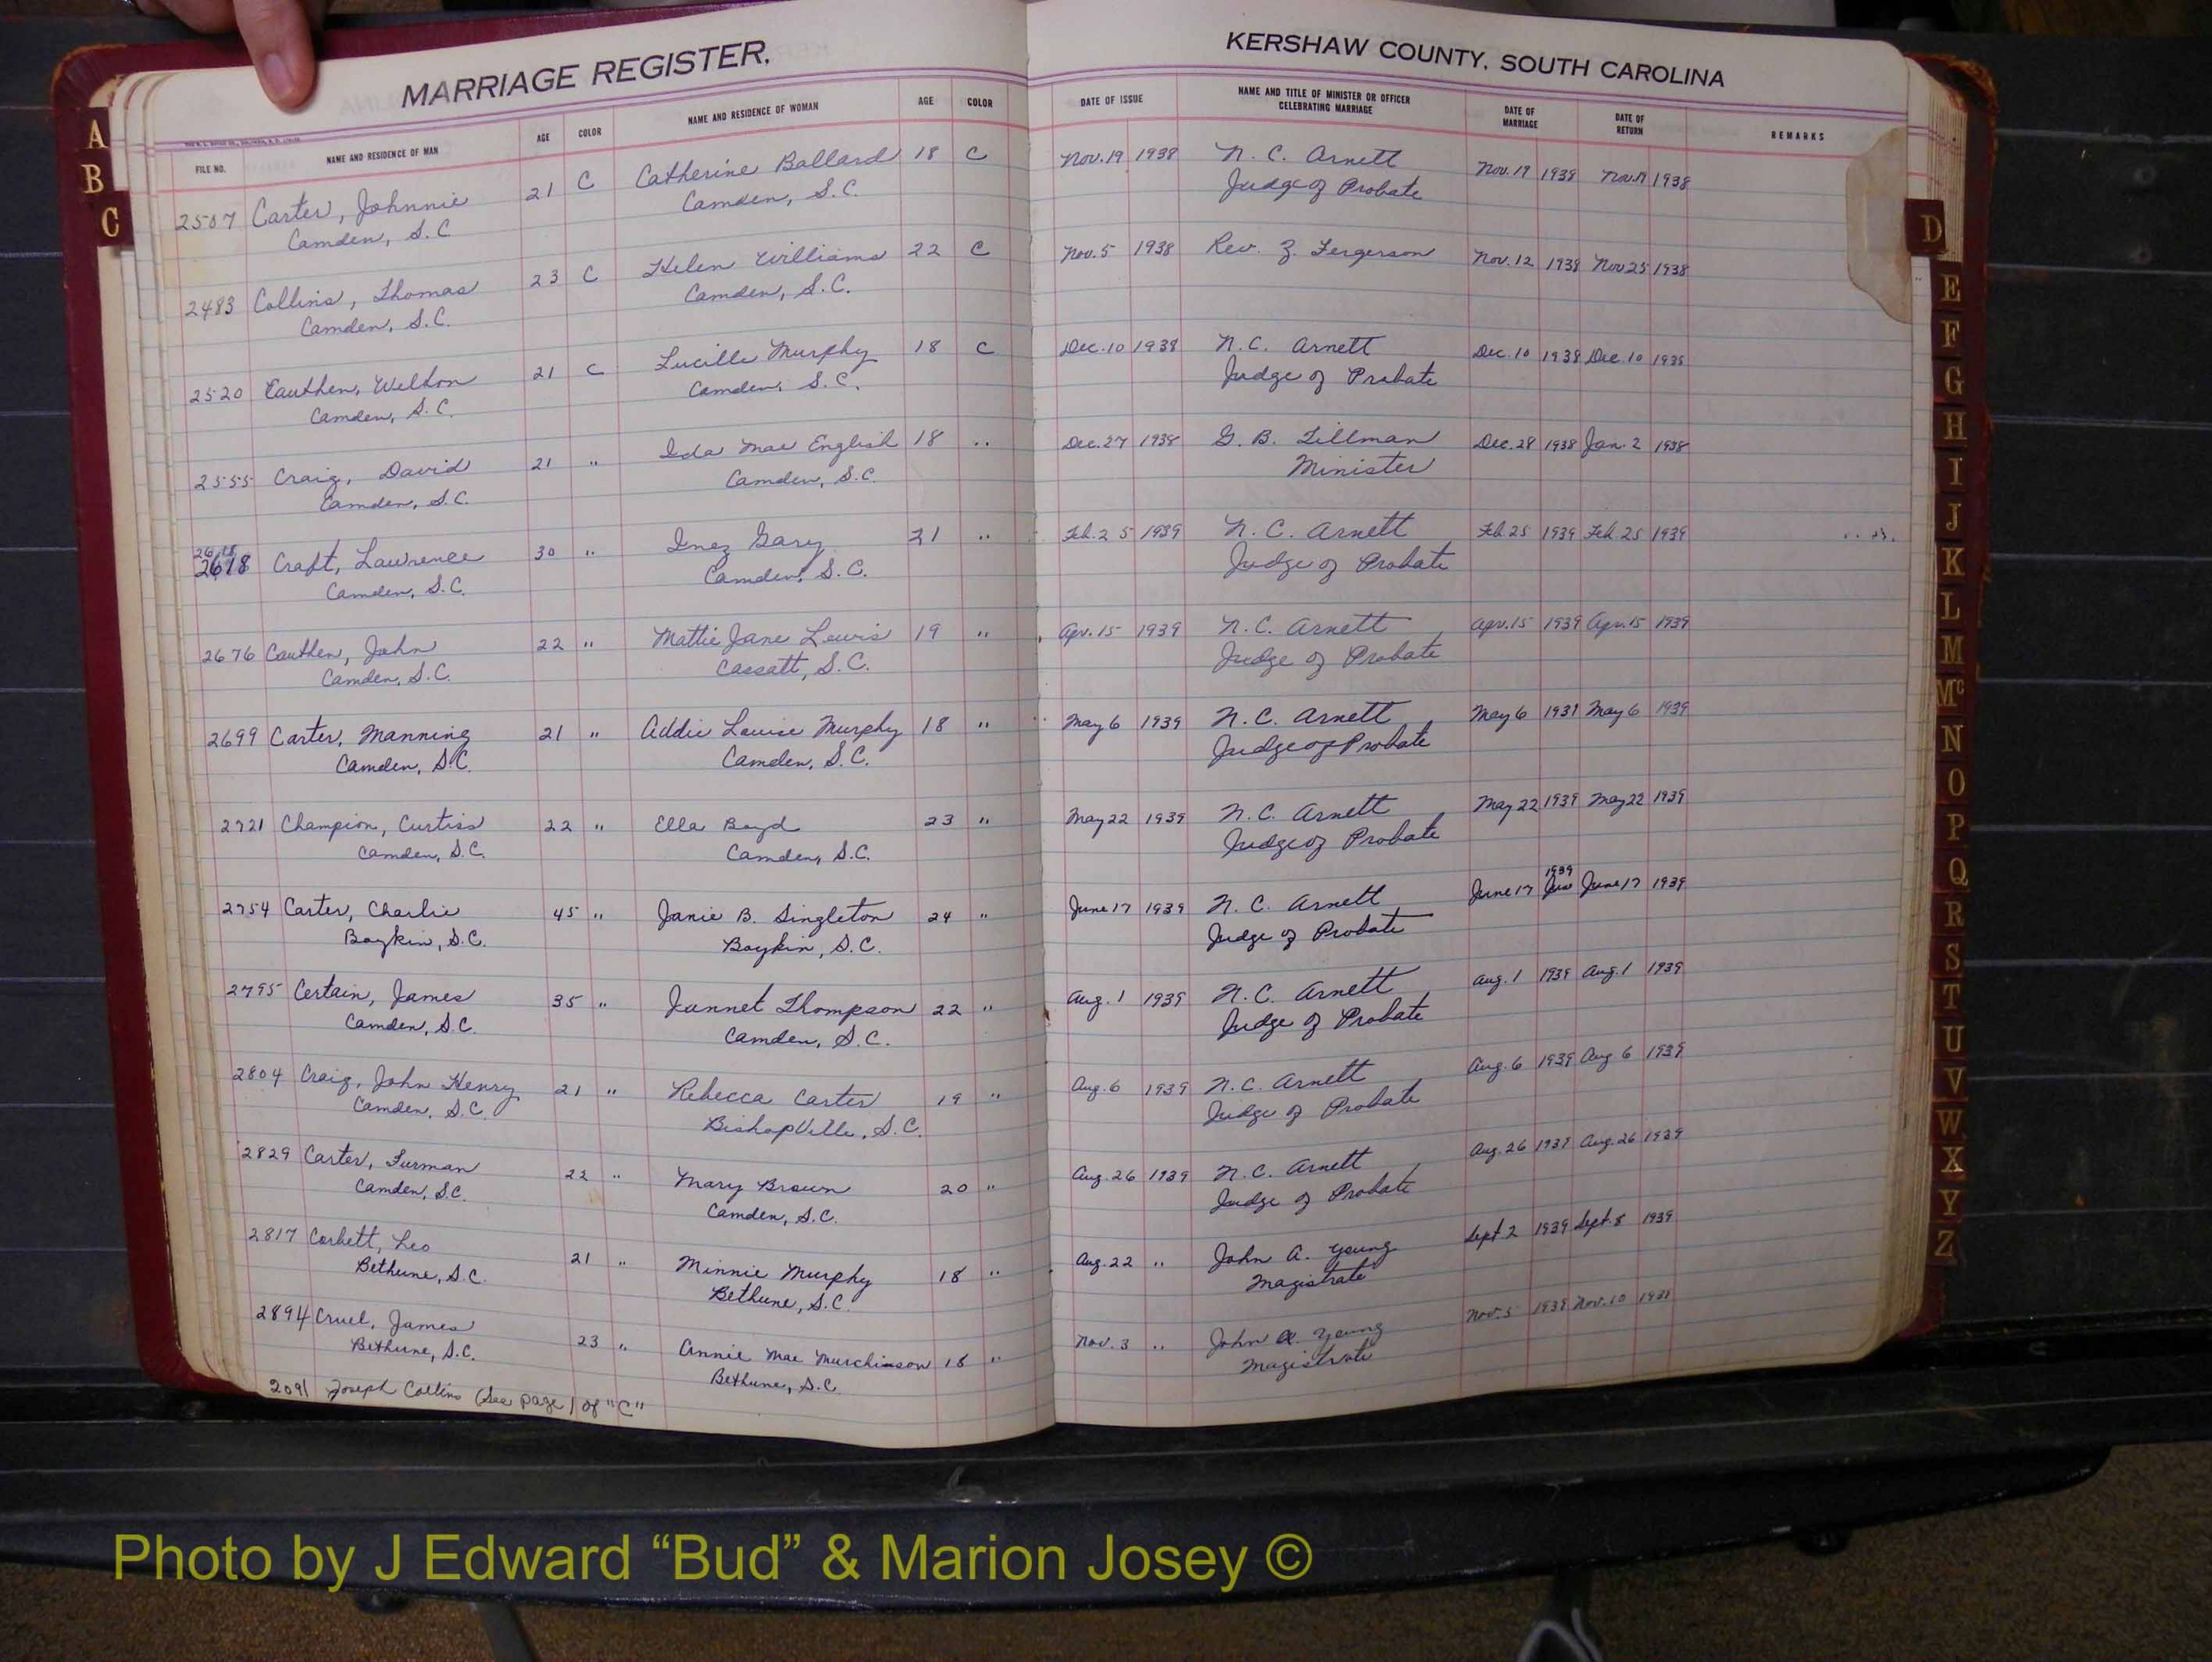 MARRIAGE REGISTER.
KERSHAW COUNTY, SOUTH CAROLINA
FILE NO. NAME AND RESIDENCE OF MAN AGE COLOR NAME AND RESIDENCE OF WOMAN AGE COLOR DATE OF ISSUE NAME AND TITLE OF MINISTER OR OFFICER CELEBRATING MARRIAGE DATE OF MARRIAGE DATE OF RETURN REMARKS
2507 Carter, Johnnie 21 C Catherine Ballard 18 C Nov. 19 1938 N. C. Arnett Nov. 19 1938 Nov. 19 1938
Camden, S.C Camden, S.C. Judge of Probate
2483 Collins, Thomas 23 C Helen Williams 22 C Nov. 5 1938 Rev. Z. Fergerson Nov. 12 1938 Nov 25 1938
Camden, S.C. Camden, S.C.
2520 Cauthen, Welton 21 C Lucille Murphy 18 C Dec. 10 1938 N.C. Arnett Dec. 10 1938 Dec. 10 1938
Camden, S.C. Camden, S.C. Judge of Probate
2555 Craig, David 21 " Ida Mae English 18 " Dec. 27 1938 G. B. Tillman Dec. 28 1938 Jan. 2 1938
Camden, S.C. Camden, S.C. Minister
2618 Craft, Lawrence 30 " Inez Gary 21 " Feb. 25 1939 N. C. Arnett Feb. 25 1939 Feb. 25 1939
Camden, S.C. Camden, S.C. Judge of Probate
2676 Cauthen, John 22 " Mattie Jane Lewis 19 " Apr. 15 1939 N.C. Arnett Apr. 15 1939 Apr. 15 1939
Camden, S.C. Cassatt, S.C. Judge of Probate
2699 Carter, Manning 21 " Addie Louise Murphy 18 " May 6 1939 N.C. Arnett May 6 1939 May 6 1939
Camden, S.C. Camden, S.C. Judge of Probate
2721 Champion, Curtiss 22 " Ella Boyd 23 " May 22 1939 N.C. Arnett May 22 1939 May 22 1939
Camden, S.C. Camden, S.C. Judge of Probate
2754 Carter, Charlie 45 " Janie B. Singleton 24 " June 17 1939 N. C. Arnett June 17 1939 June 17 1939
Boykin, S.C. Boykin, S.C. Judge of Probate
2795 Certain, James 35 " Jannet Thompson 22 " Aug. 1 1939 N.C. Arnett Aug. 1 1939 Aug. 1 1939
Camden, S.C. Camden, S.C. Judge of Probate
2804 Craig, John Henry 21 " Rebecca Carter 19 " Aug. 6 1939 N.C. Arnett Aug. 6 1939 Aug 6 1939
Camden, S.C. BishopVille, S.C. Judge of Probate
2829 Carter, Furman 22 " Mary Brown 20 " Aug. 26 1939 N.C. Arnett Aug. 26 1939 Aug. 26 1939
Camden, S.C. Camden, S.C. Judge of Probate
2817 Corbett, Leo 21 " Minnie Murphy 18 " Aug. 22 " John A. Young Sept 2 1939 Sept. 8 1939
Bethune, S.C. Bethune, S.C. Magistrate
2894 Cruel, James 23 " Annie Mae Murchinson 18 " Nov. 3 " John A. Young Nov. 5 1939 Nov. 10 1939
Bethune, S.C. Bethune, S.C. Magistrate
2091 Joseph Collins (See page 1 of "C"
A
B
C
D
E
F
G
H
I
J
K
L
M
Mc
N
O
P
Q
R
S
T
U
V
W
X
Y
Z
Photo by J Edward “Bud” & Marion Josey ©